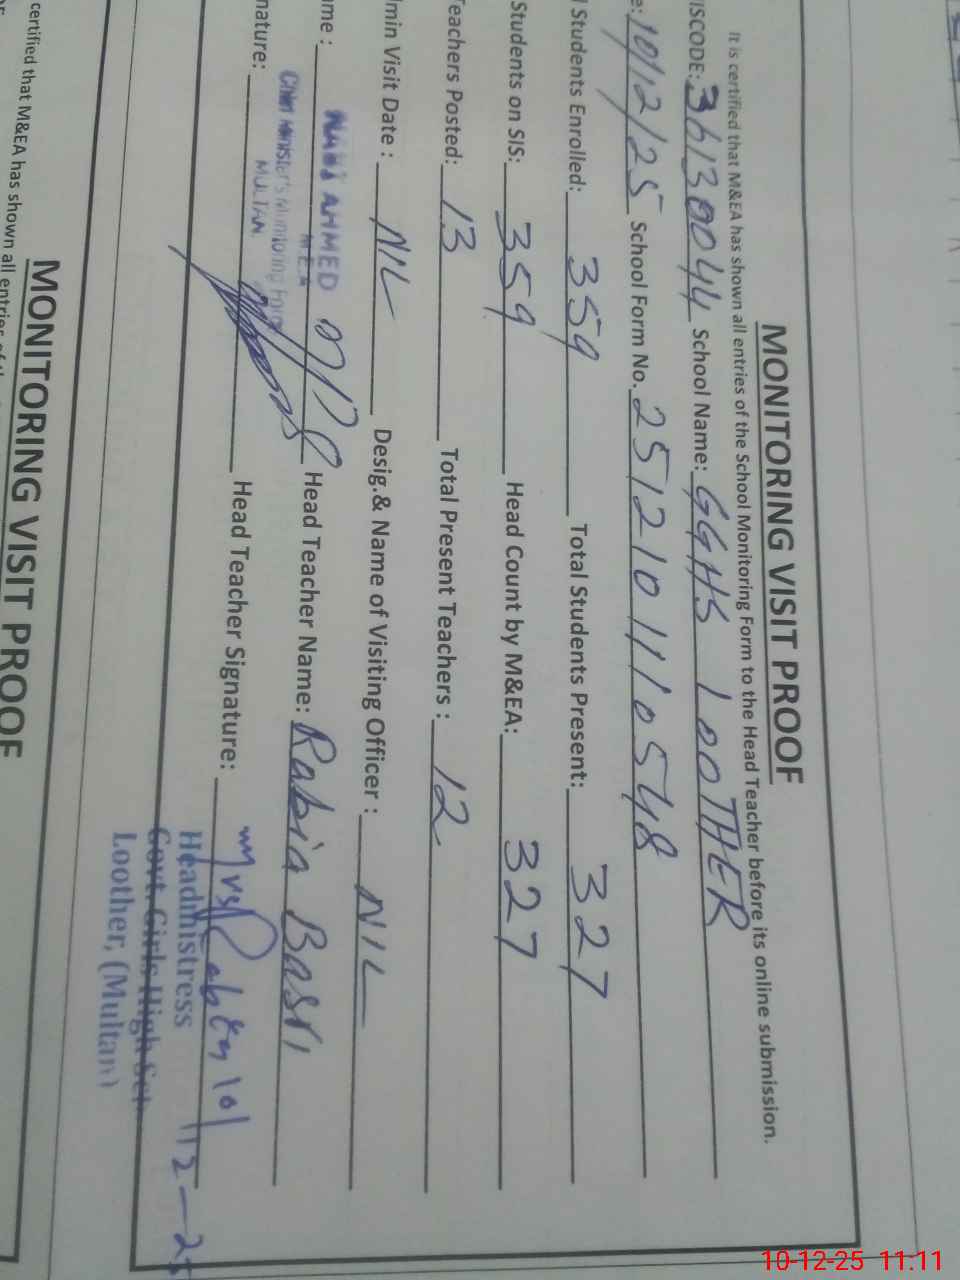 MONITORING VISIT PROOF
It is certified that M&EA has shown all entries of the School Monitoring Form to the Head Teacher before its online submission.
ISCODE: 36130044 School Name: GGHS LOOTHER
e: 10/12/25 School Form No. 25121011110548
l Students Enrolled: 359 Total Students Present: 327
Students on SIS: 359 Head Count by M&EA: 327
Teachers Posted: 13 Total Present Teachers : 12
min Visit Date : NIL Desig.& Name of Visiting Officer : NIL
ame : AHMED Head Teacher Name: Rabia Basri
M.E.A
Chief Minister's Monitoring Force
MULTAN
nature: Head Teacher Signature:
Headmistress
Govt. Girls High Sch.
Loother, (Multan)
certified that M&EA has shown all entries of the
MONITORING VISIT PROOF
10-12-25 11:11